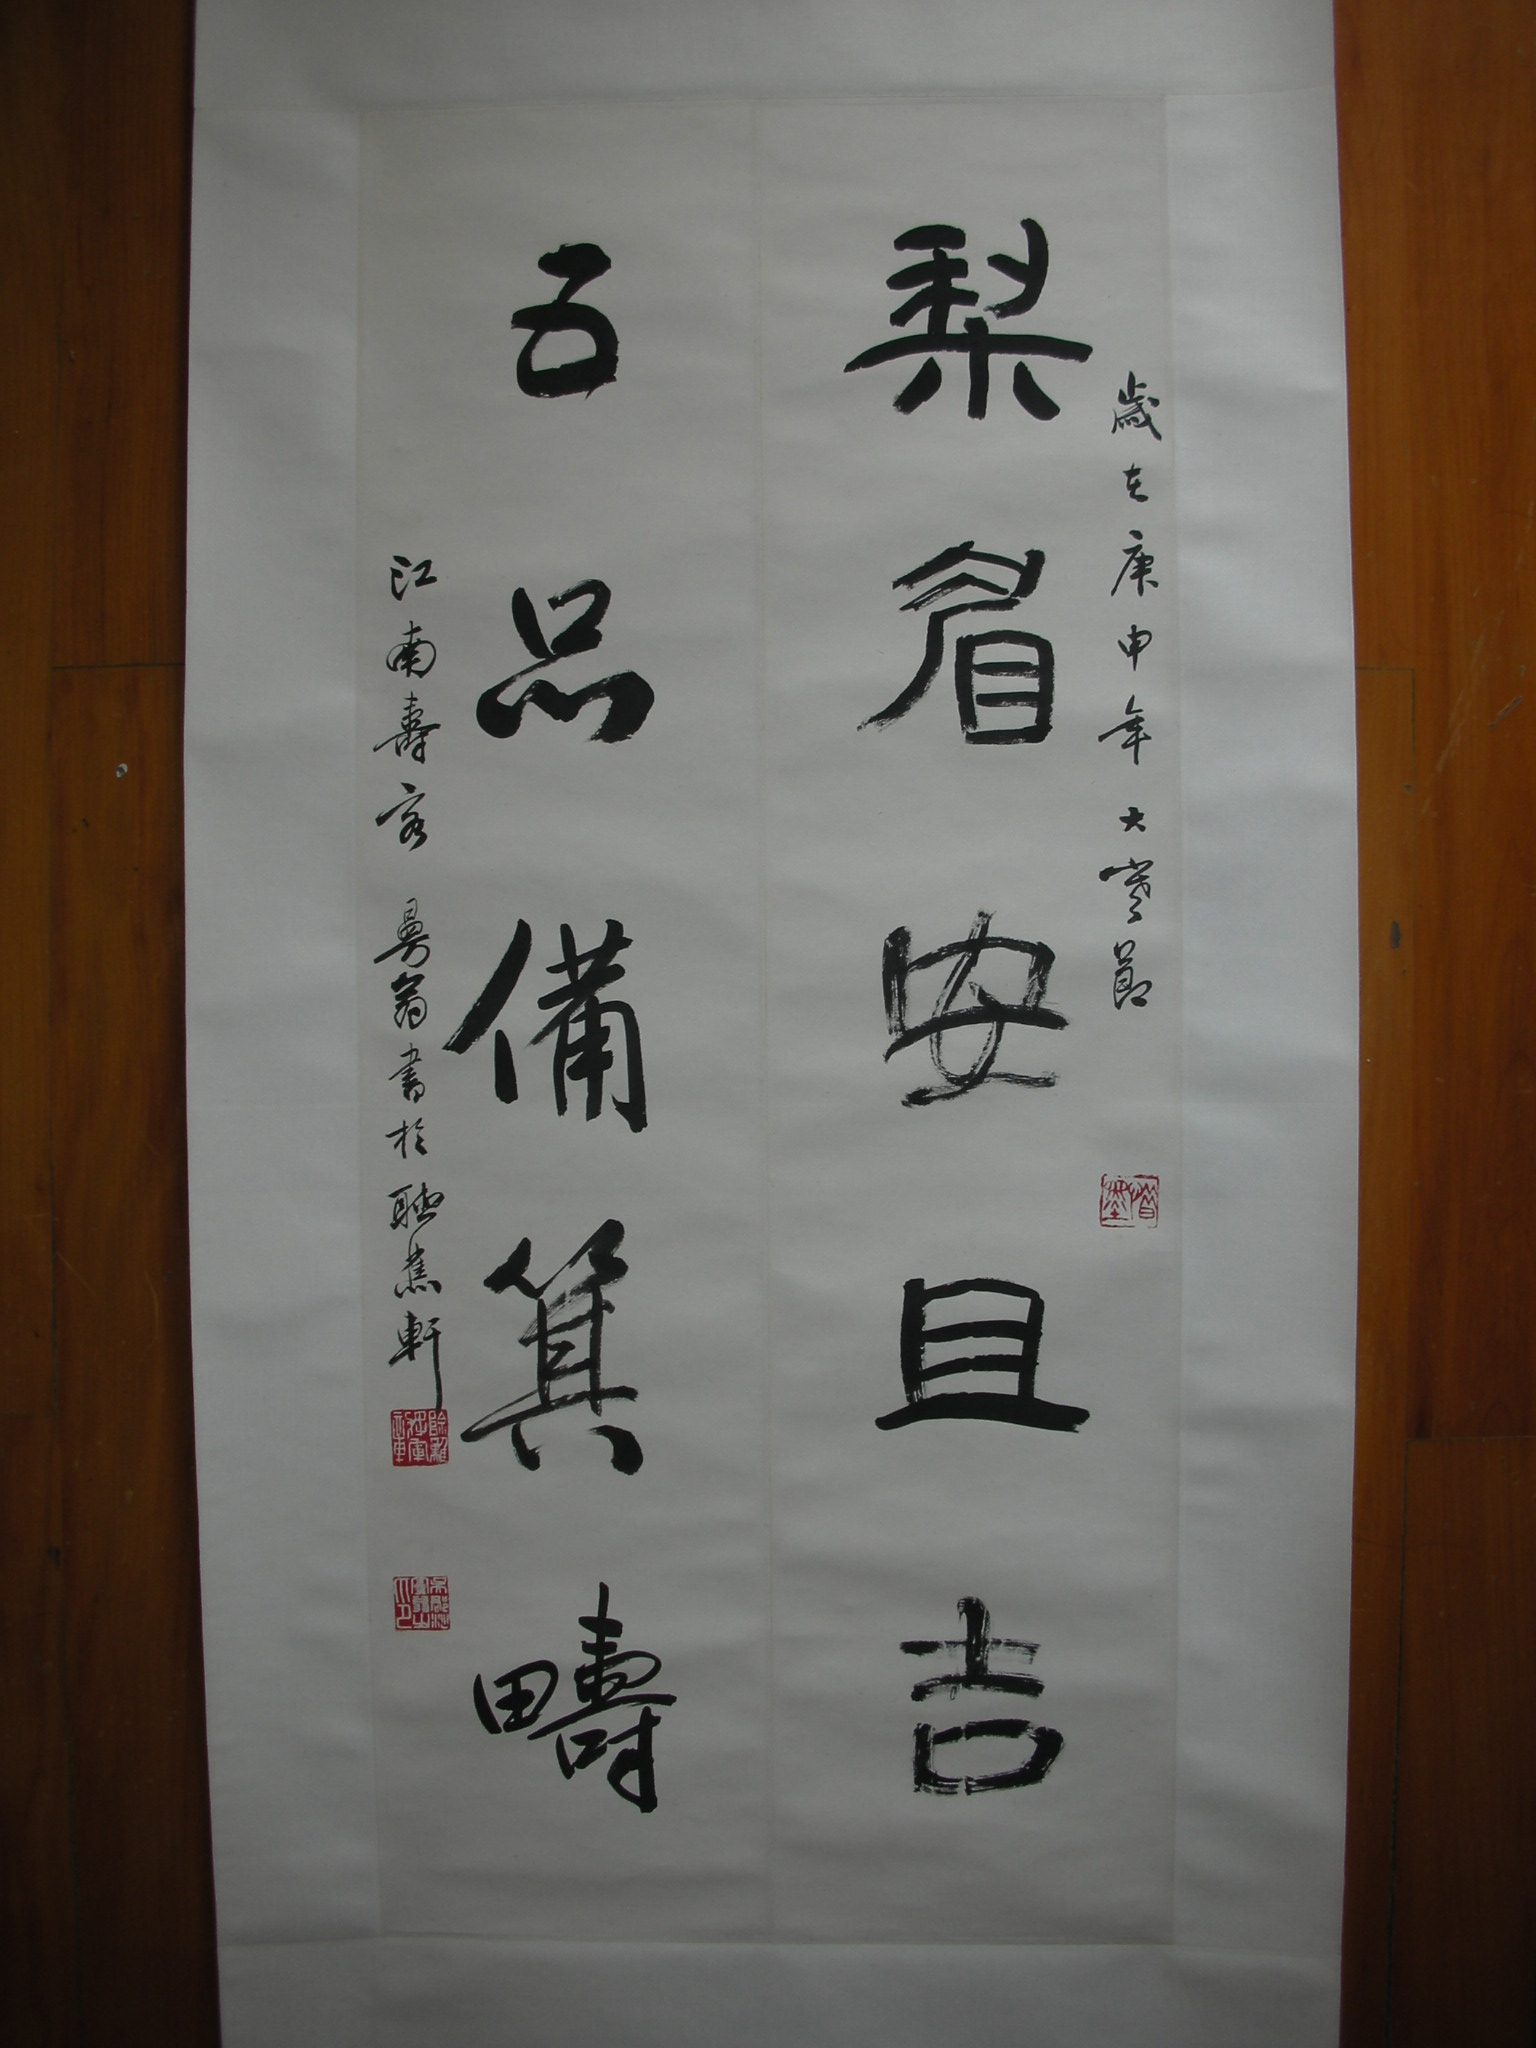 歲在庚申年大寒節
梨眉安且吉
五品備箕疇
江南壽客 翁書於聽蕉軒